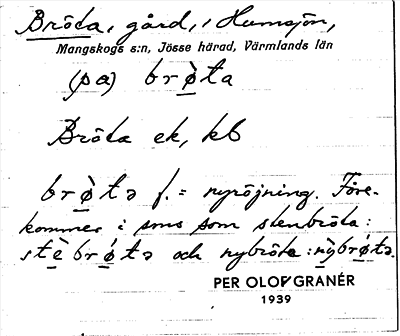 Bröta, gård, Humsjön,
Mangskogs s:n, Jösse härad, Värmlands län
(pa) brø̀ta
Bröta ek, kb
brø̀tə f. = nyröjning. Före-
kommer i sms som stenbröta:
stèbrǿtə och nybröta: nỳbrǿtə.
PER OLOF GRANÉR
1939